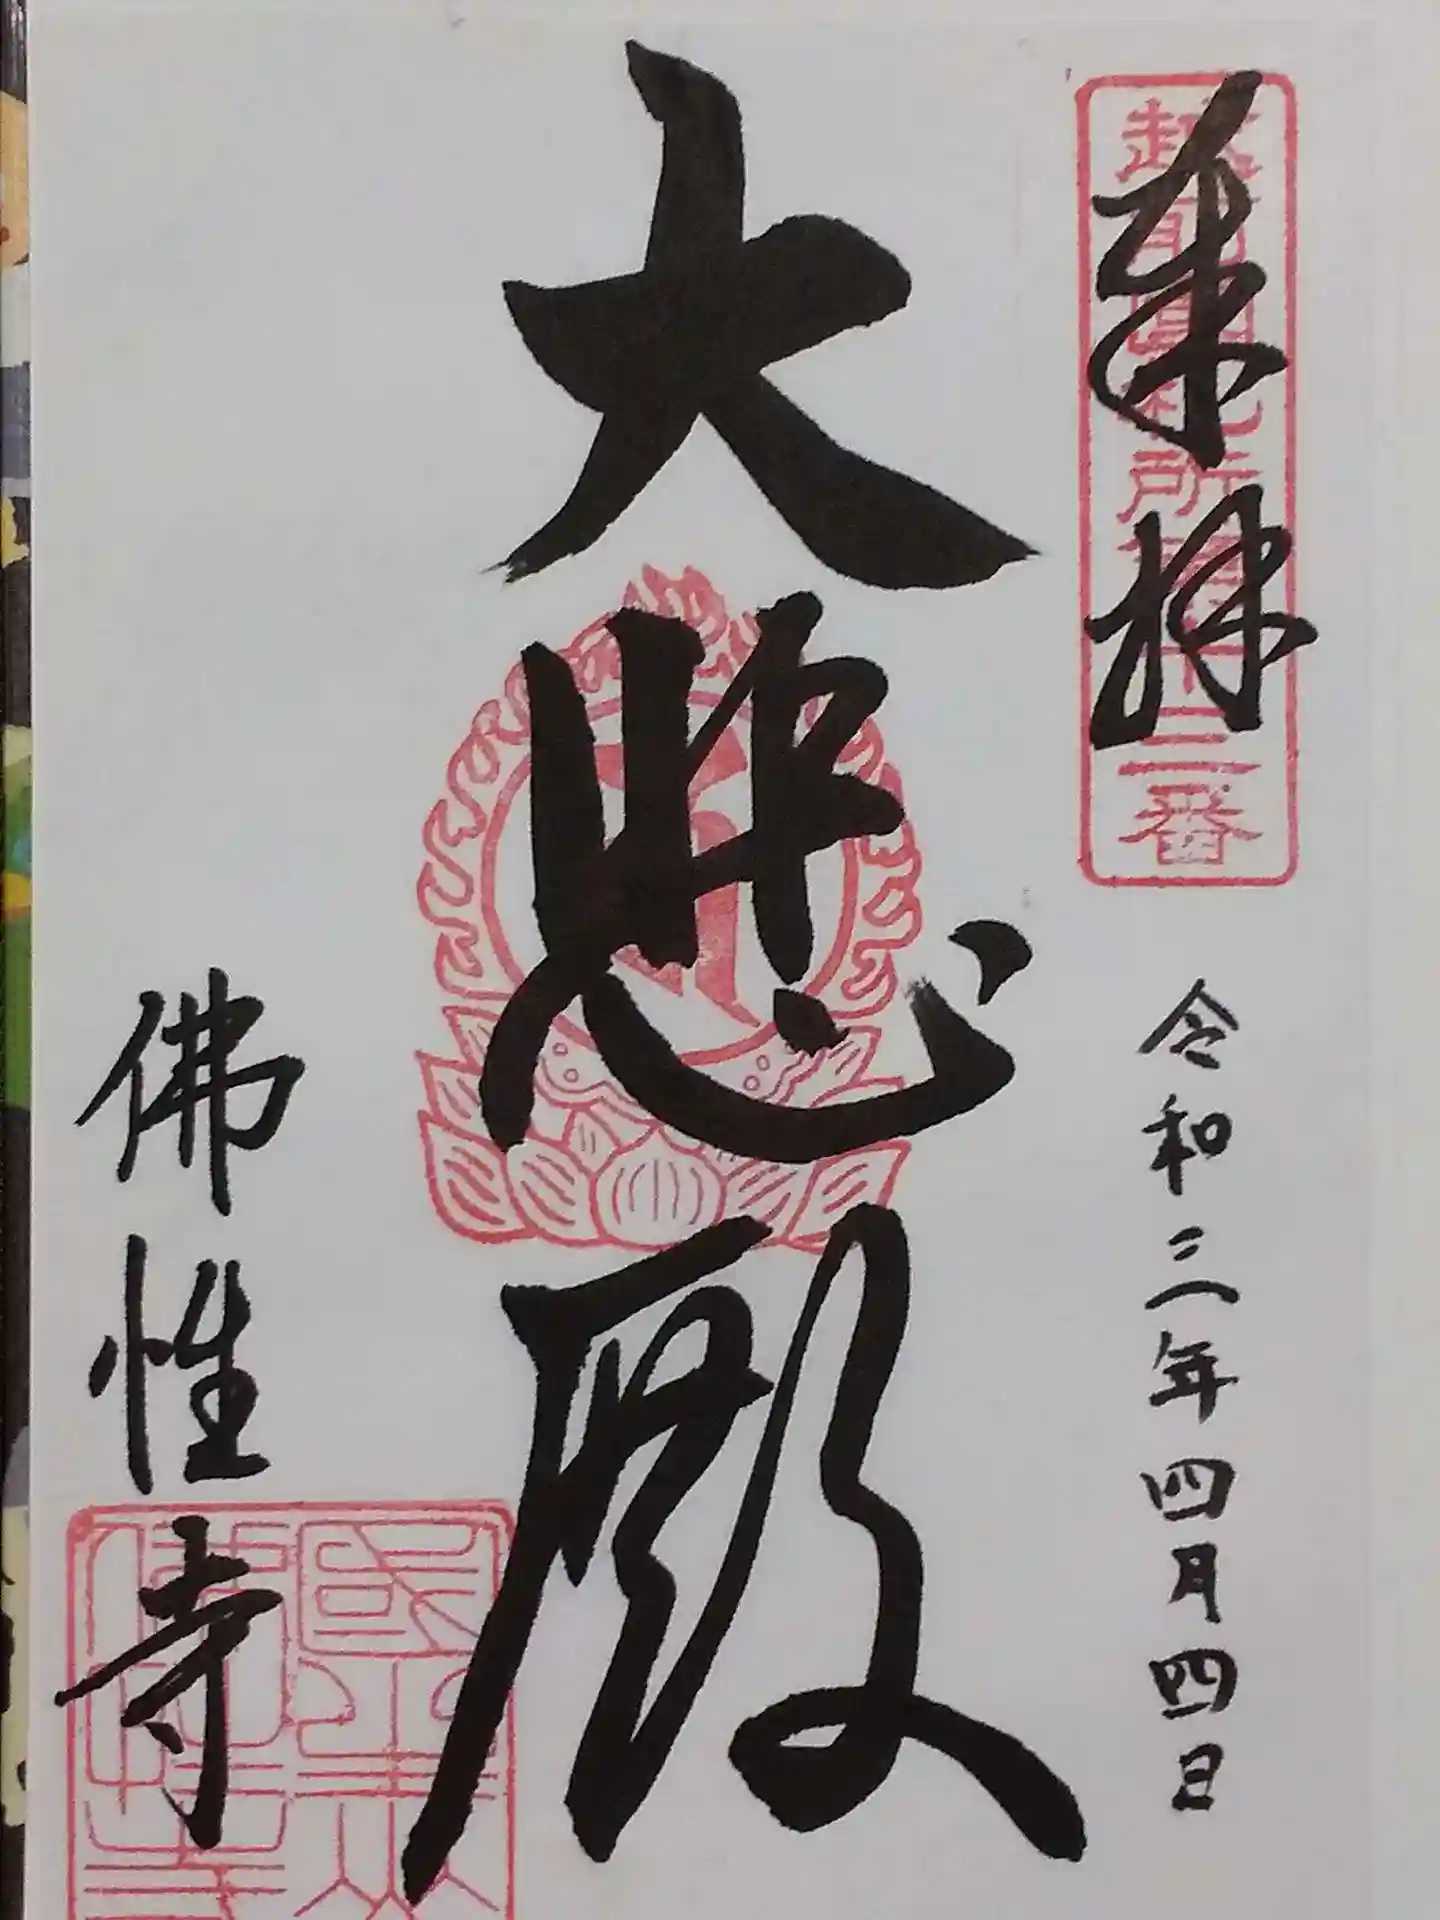 奉拝
越前国札所
令和三年四月四日
大悲殿
佛性寺